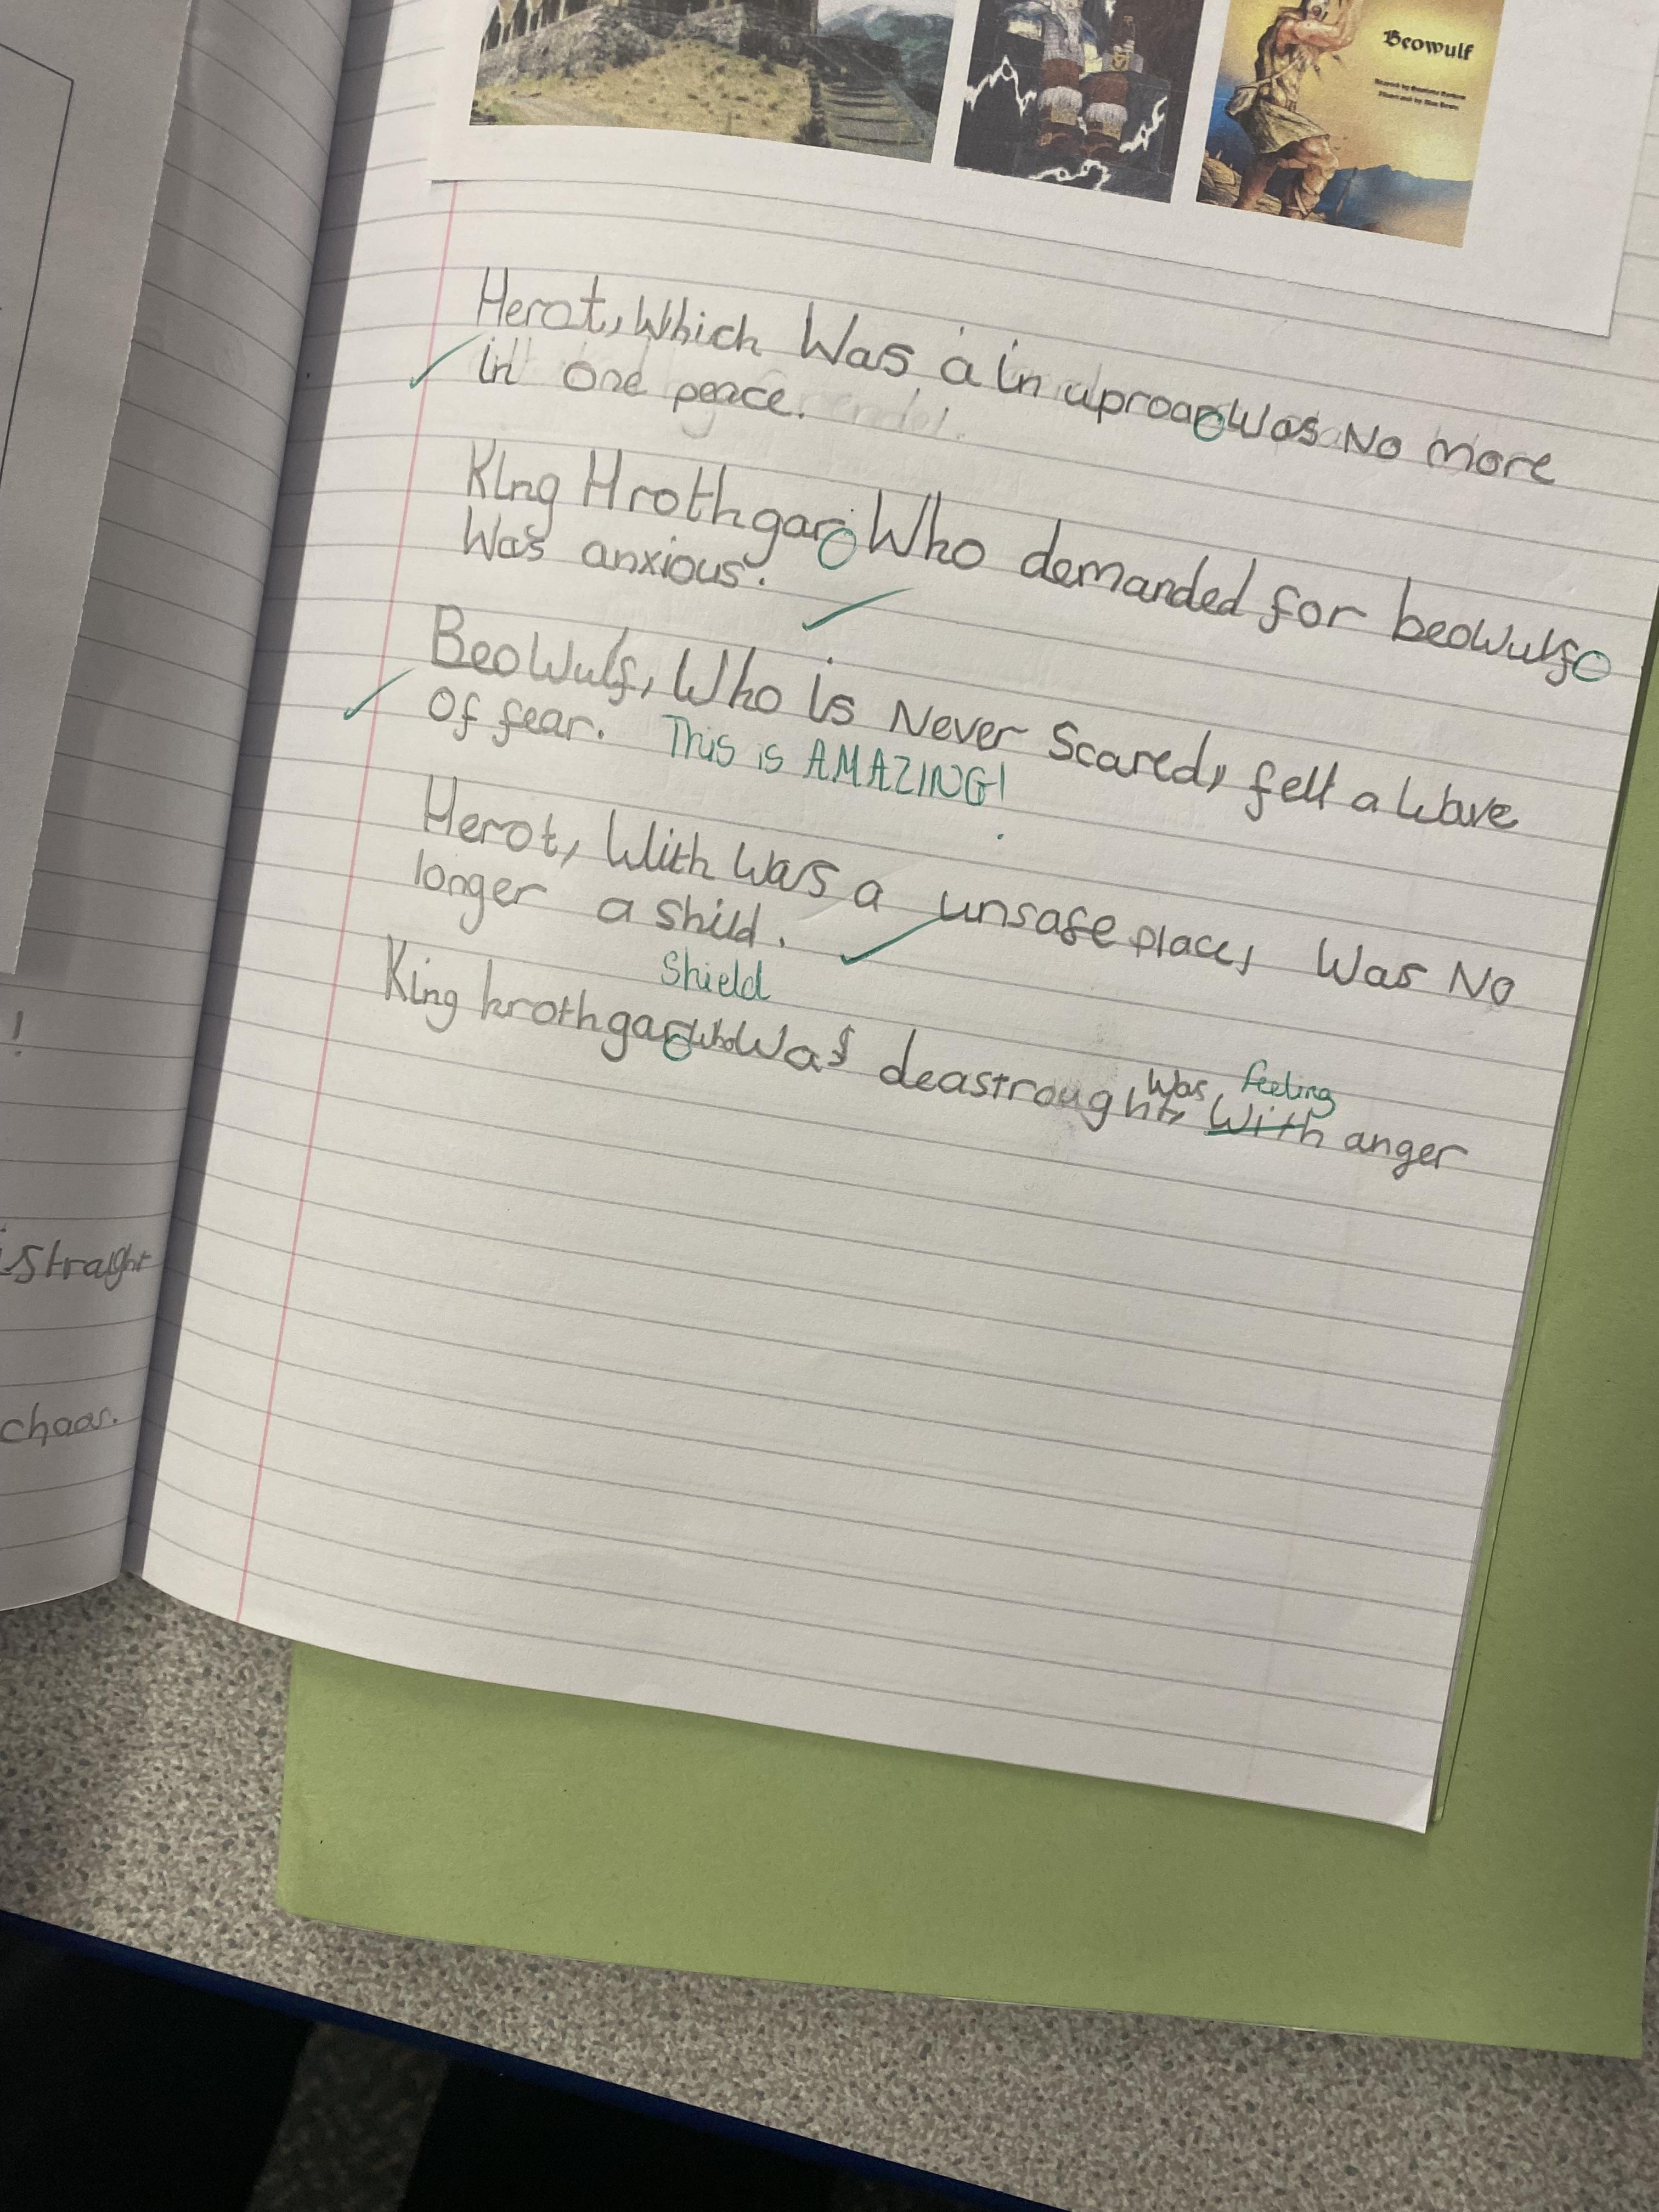 Beowulf
!
istraght
chaos.
Herot, Which Was a in uproar Was No more
in one peace.
King Hrothgar Who demanded for beowulf
Was anxious.
BeoWulf, Who is Never Scared, felt a Wave
of fear. This is AMAZING!
Herot, With Was a unsafe place, Was No
longer a shild.
Shield
King hrothgar who Was deastrought, Was feeling With anger